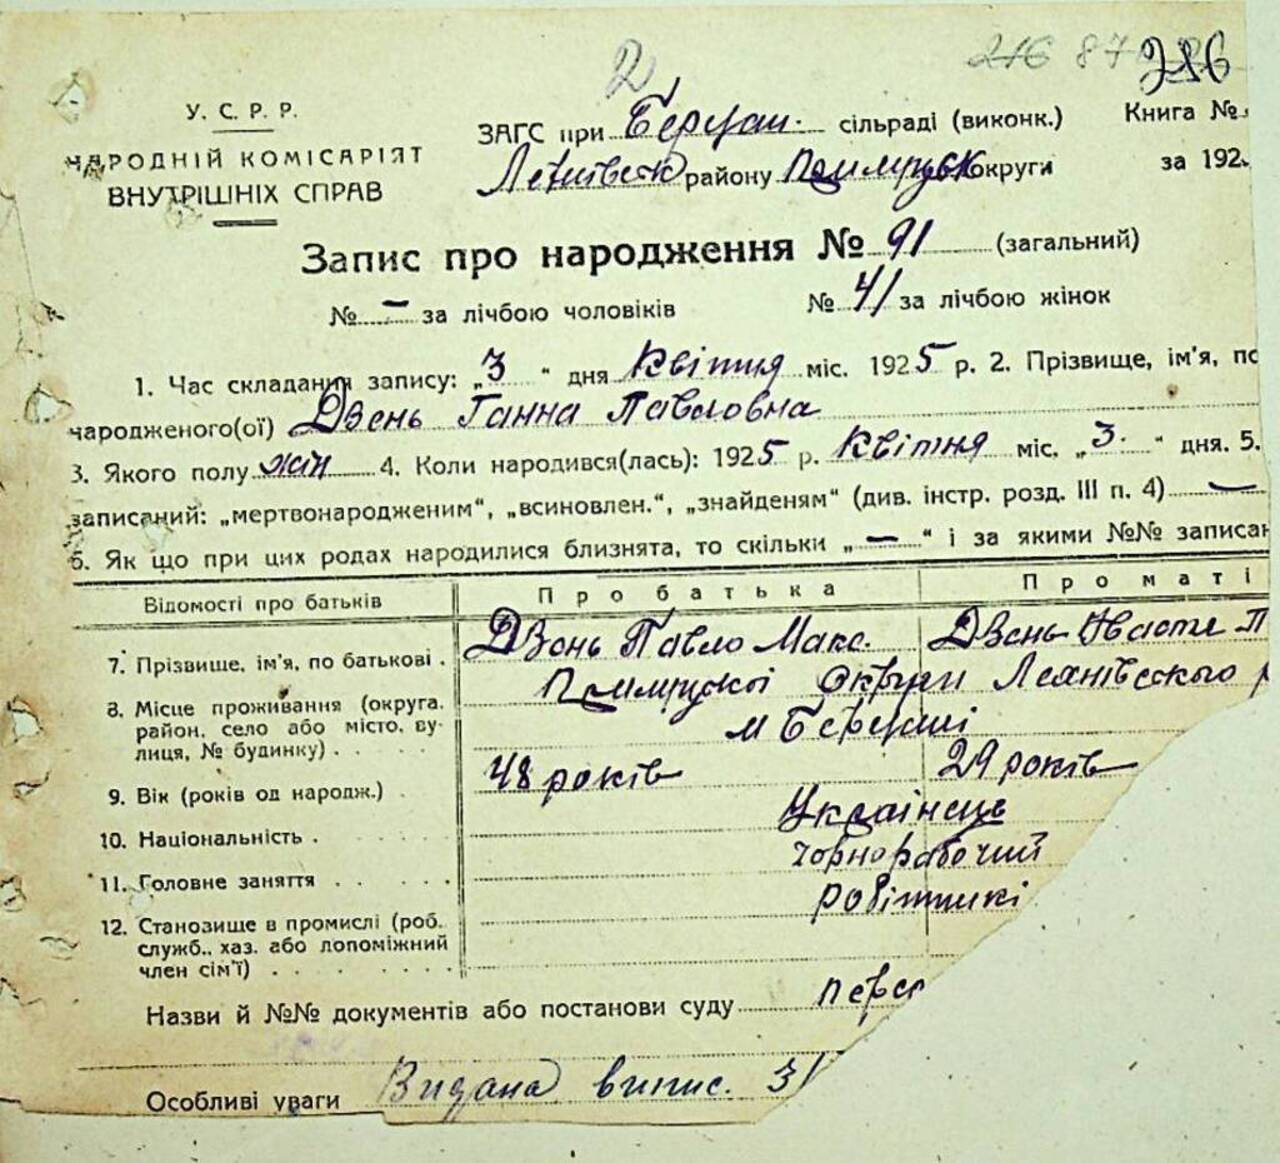 2 216 87 216
У. С. Р. Р.
НАРОДНІЙ КОМІСАРІЯТ
ВНУТРІШНІХ СПРАВ
ЗАГС при Березан. сільраді (виконк.) Книга №
району округи за 192
Запис про народження № 91 (загальний)
№ — за лічбою чоловіків № 41 за лічбою жінок
1. Час складання запису: „3 “ дня Квітня міс. 1925 р. 2. Прізвище, ім'я, по
народженого(ої) Дзень Ганна Павловна
3. Якого полу жін 4. Коли народився(лась): 1925 р. Квітня міс. „3. “ дня. 5.
записаний: „мертвонародженим“, „всиновлен.“, „знайденям“ (див. інстр. розд. III п. 4) —
6. Як що при цих родах народилися близнята, то скільки „—“ і за якими №№ записан
Відомості про батьків Про батька Про маті
7. Прізвище, ім'я, по батькові . Дзень Павло Макс. Дзень П
8. Місце проживання (округа, район, село або місто, ву-
лиця, № будинку) . . Округи
м
9. Вік (років од народж.) . 48 років 29 років
10. Національність . Українець
11. Головне заняття . . . . чорнорабочий
12. Становище в промислі (роб., робітникі
служб., хаз. або допоміжний
член сім'ї) . . . . . .
Назви й №№ документів або постанови суду
Особливі уваги Видана випис. 31